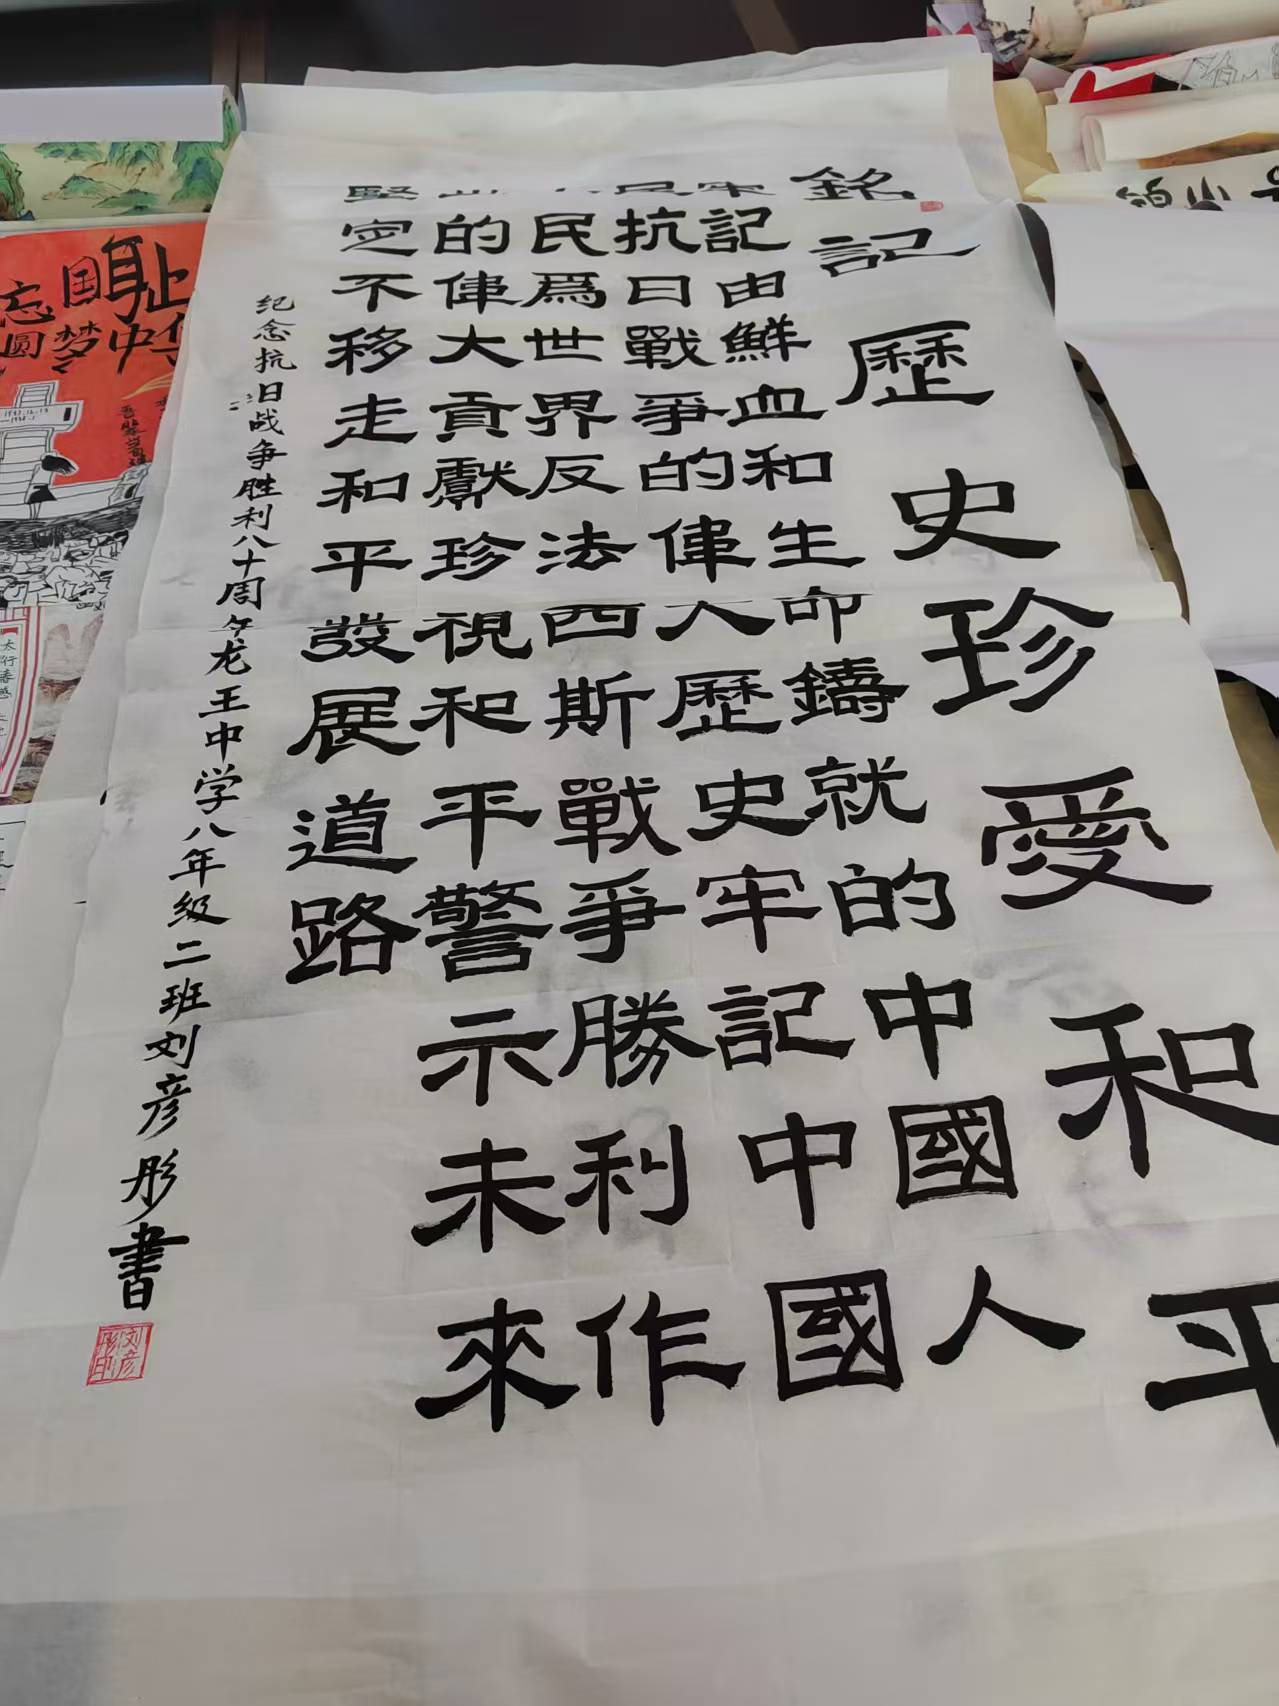 銘記歷史珍愛和平
牢記由鮮血和生命鑄就的中國人
民抗日戰爭的偉大歷史牢記中國
人民爲世界反法西斯戰爭勝利作
出的偉大貢獻珍視和平警示未來
堅定不移走和平發展道路
纪念抗日战争胜利八十周年龙王中学八年级二班刘彦彤書
刘彦彤印
忘国耻
圆梦中